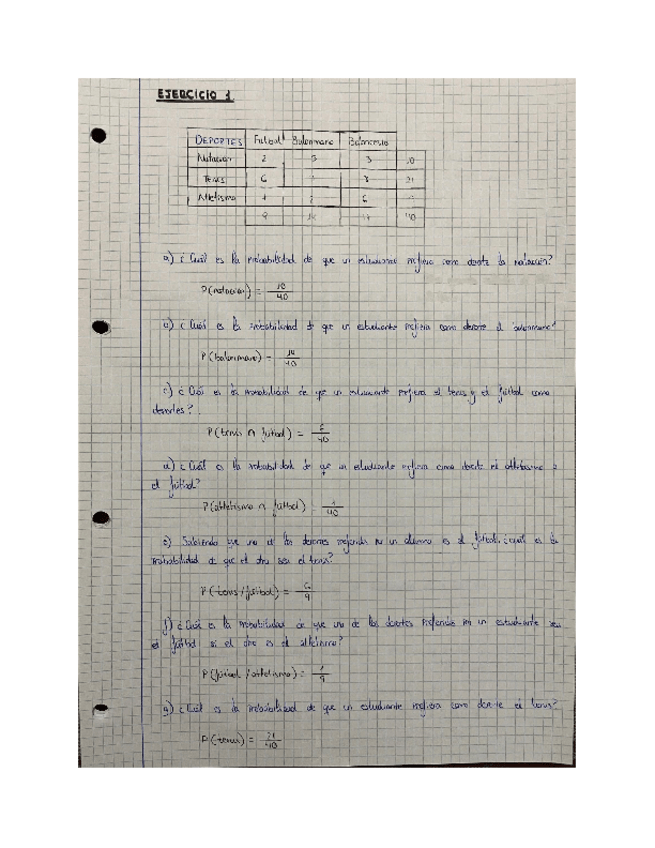 EJERCICIO 1
DEPORTES Fútbol Balonmano Baloncesto
Natación 2 5 3 10
Tenis 6 8 21
Atletismo 1 2 6
9 14 17 40
a) ¿Cuál es la probabilidad de que un estudiante prefiera como deporte la natación?
P(natación) = 10/40
b) ¿Cuál es la probabilidad de que un estudiante prefiera como deporte el balonmano?
P(balonmano) = 14/40
c) ¿Cuál es la probabilidad de que un estudiante prefiera el tenis y el fútbol como
deportes?
P(tenis ∩ fútbol) = 6/40
d) ¿Cuál es la probabilidad de que un estudiante prefiera como deporte el atletismo
el fútbol?
P(atletismo ∩ fútbol) = 1/40
e) Sabiendo que uno de los deportes preferidos por un alumno es el fútbol, ¿cuál es la
probabilidad de que el otro sea el tenis?
P(tenis/fútbol) = 6/9
f) ¿Cuál es la probabilidad de que uno de los deportes preferidos por un estudiante sea
el fútbol si el otro es el atletismo?
P(fútbol/atletismo) = 1/9
g) ¿Cuál es la probabilidad de que un estudiante prefiera como deporte el tenis?
P(tenis) = 21/40